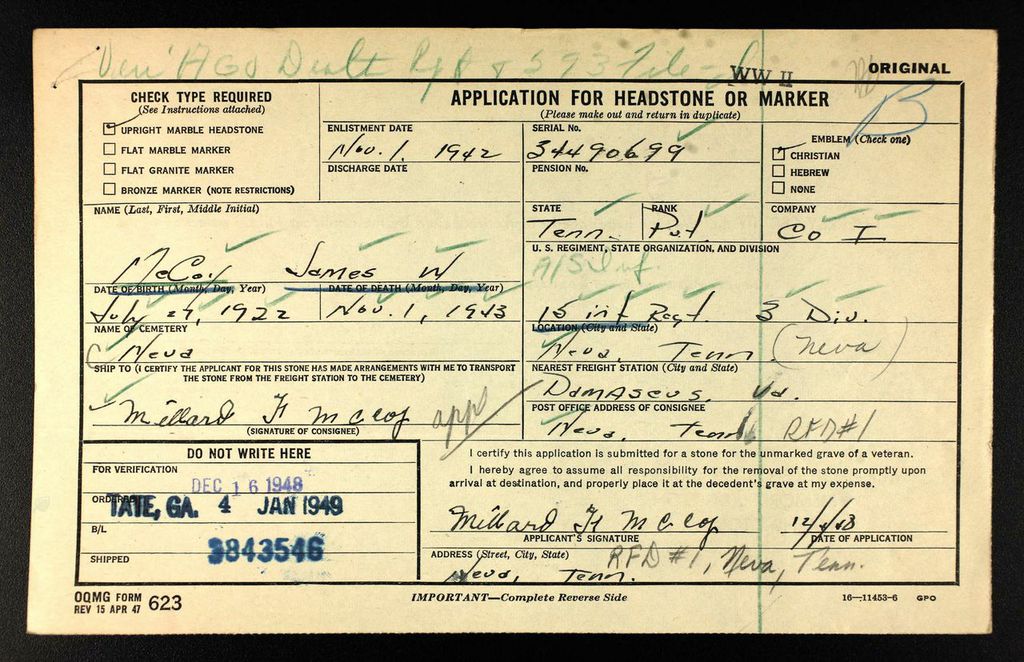 Veri AGO Death Rpt & 293 File
WW II
ORIGINAL
B
CHECK TYPE REQUIRED
(See Instructions attached)
UPRIGHT MARBLE HEADSTONE
FLAT MARBLE MARKER
FLAT GRANITE MARKER
BRONZE MARKER (NOTE RESTRICTIONS)
APPLICATION FOR HEADSTONE OR MARKER
(Please make out and return in duplicate)
ENLISTMENT DATE
Nov. 1, 1942
DISCHARGE DATE
SERIAL No.
34490699
PENSION No.
EMBLEM (Check one)
CHRISTIAN
HEBREW
NONE
NAME (Last, First, Middle Initial)
McCoy James W
STATE
Tenn.
RANK
Pvt.
COMPANY
Co I
U. S. REGIMENT, STATE ORGANIZATION, AND DIVISION
15 inf Regt. 3 Div.
DATE OF BIRTH (Month, Day, Year)
July 27, 1922
DATE OF DEATH (Month, Day, Year)
Nov. 1, 1943
NAME OF CEMETERY
Neva
LOCATION (City and State)
Neva, Tenn (Neva)
SHIP TO (I CERTIFY THE APPLICANT FOR THIS STONE HAS MADE ARRANGEMENTS WITH ME TO TRANSPORT
THE STONE FROM THE FREIGHT STATION TO THE CEMETERY)
NEAREST FREIGHT STATION (City and State)
Damascus, Va.
Millard F McCoy
(SIGNATURE OF CONSIGNEE)
app
POST OFFICE ADDRESS OF CONSIGNEE
Neva, Tenn RFD #1
DO NOT WRITE HERE
FOR VERIFICATION
DEC 16 1948
ORDERED
TATE, GA. 4 JAN 1949
B/L
3843546
SHIPPED
I certify this application is submitted for a stone for the unmarked grave of a veteran.
I hereby agree to assume all responsibility for the removal of the stone promptly upon
arrival at destination, and properly place it at the decedent's grave at my expense.
Millard F McCoy
APPLICANT'S SIGNATURE
DATE OF APPLICATION
ADDRESS (Street, City, State)
RFD #1, Neva, Tenn.
Neva, Tenn.
OQMG FORM
REV 15 APR 47 623
IMPORTANT—Complete Reverse Side
16—11453-6 GPO